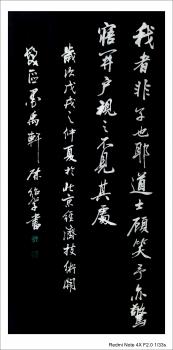 我者非子也耶道士顾笑予亦驚
寤開户視之不見其處
歲次戊戌之仲夏於北京經濟技術開
發区墨禹軒 陈紹军書
Redmi Note 4X F2.0 1/33s